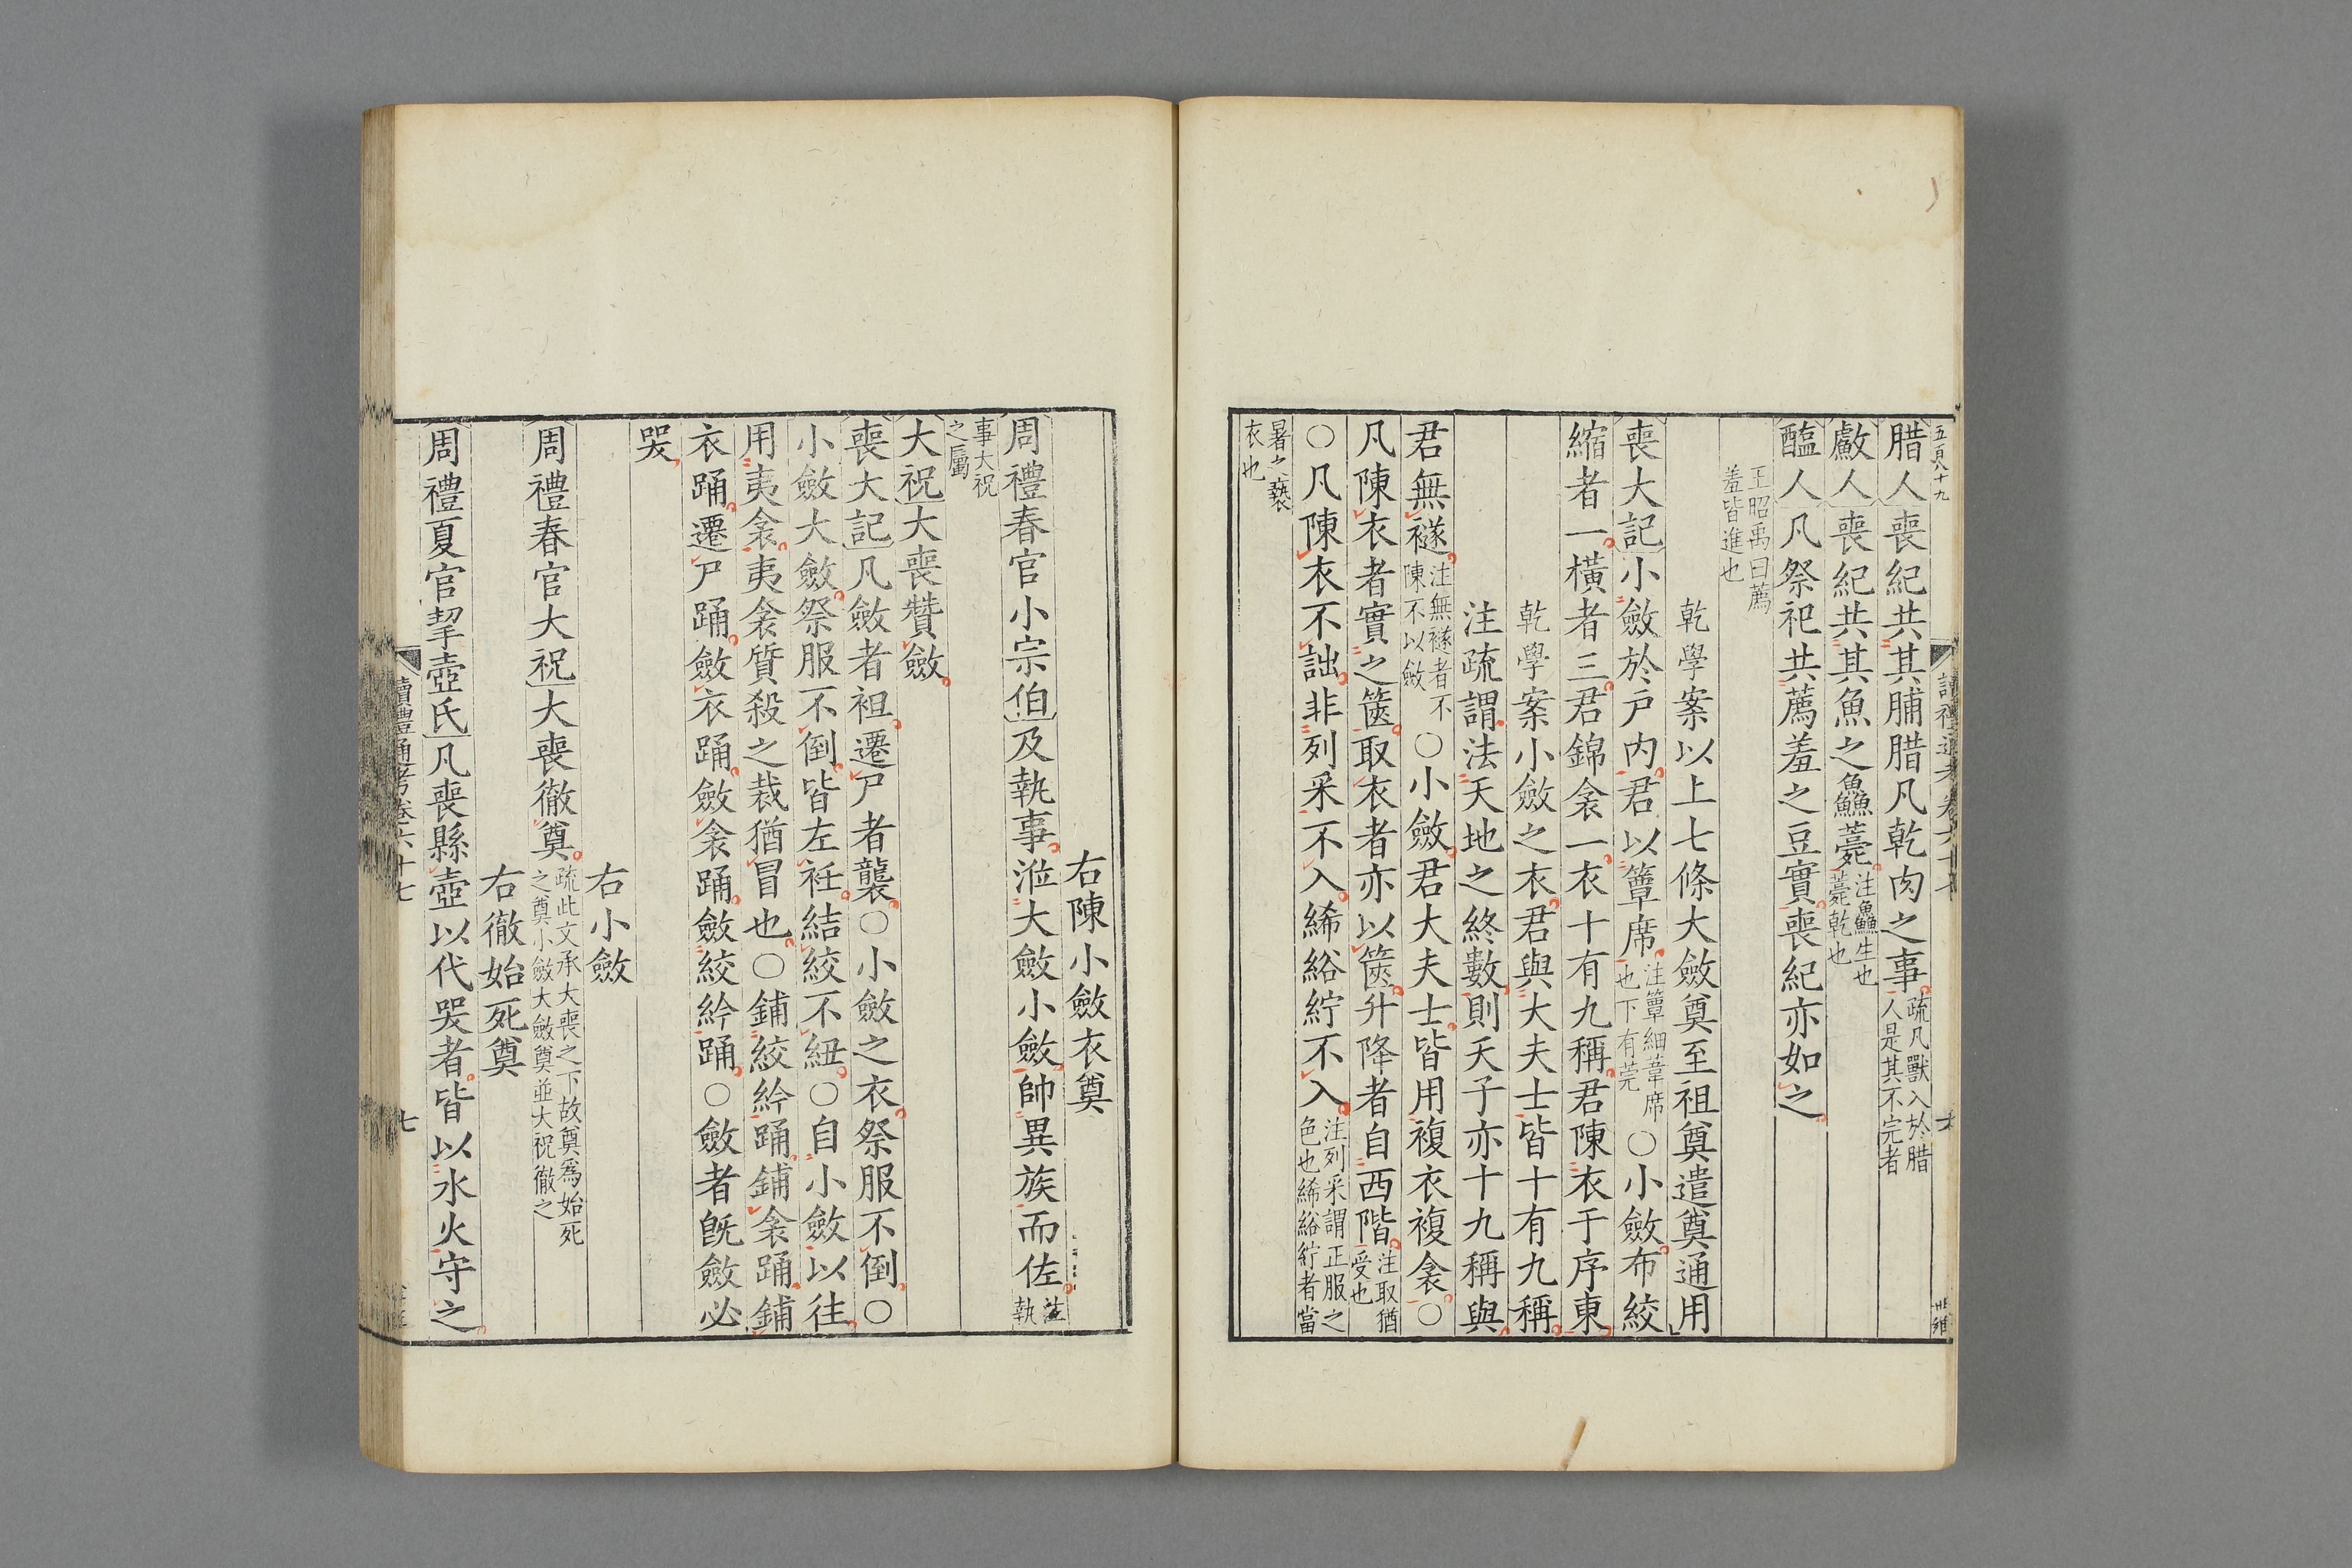 五百八十九
腊人喪紀共其脯腊凡乾肉之事疏凡獸入於腊人是其不完者
䱷人喪紀共其魚之鱻薧注鱻生也薧乾也
醢人凡祭祀共薦羞之豆實喪紀亦如之
王昭禹曰薦羞皆進也
乾學案以上七條大斂奠至祖奠遣奠通用
喪大記小斂於戶內君以簟席注簟細葦席也下有莞○小斂布絞
縮者一橫者三君錦衾一衣十有九稱君陳衣于序東
乾學案小斂之衣君與大夫士皆十有九稱
注疏謂法天地之終數則天子亦十九稱與
君無襚注無襚者不陳不以斂○小斂君大夫士皆用複衣複衾○
凡陳衣者實之篋取衣者亦以篋升降者自西階注取猶受也
○凡陳衣不詘非列采不入絺綌紵不入注列采謂正服之色也絺綌紵者當
暑之褻衣也
右陳小斂衣奠
周禮春官小宗伯及執事涖大斂小斂帥異族而佐注執
事大祝之屬
大祝大喪贊斂
喪大記凡斂者袒遷尸者襲○小斂之衣祭服不倒○
小斂大斂祭服不倒皆左衽結絞不紐○自小斂以往
用夷衾夷衾質殺之裁猶冒也○鋪絞紟踊鋪衾踊鋪
衣踊遷尸踊斂衣踊斂衾踊斂絞紟踊○斂者既斂必
哭
右小斂
周禮春官大祝大喪徹奠疏此文承大喪之下故奠爲始死之奠小斂大斂奠並大祝徹之
右徹始死奠
周禮夏官挈壺氏凡喪縣壺以代哭者皆以水火守之
讀禮通考卷六十七
七